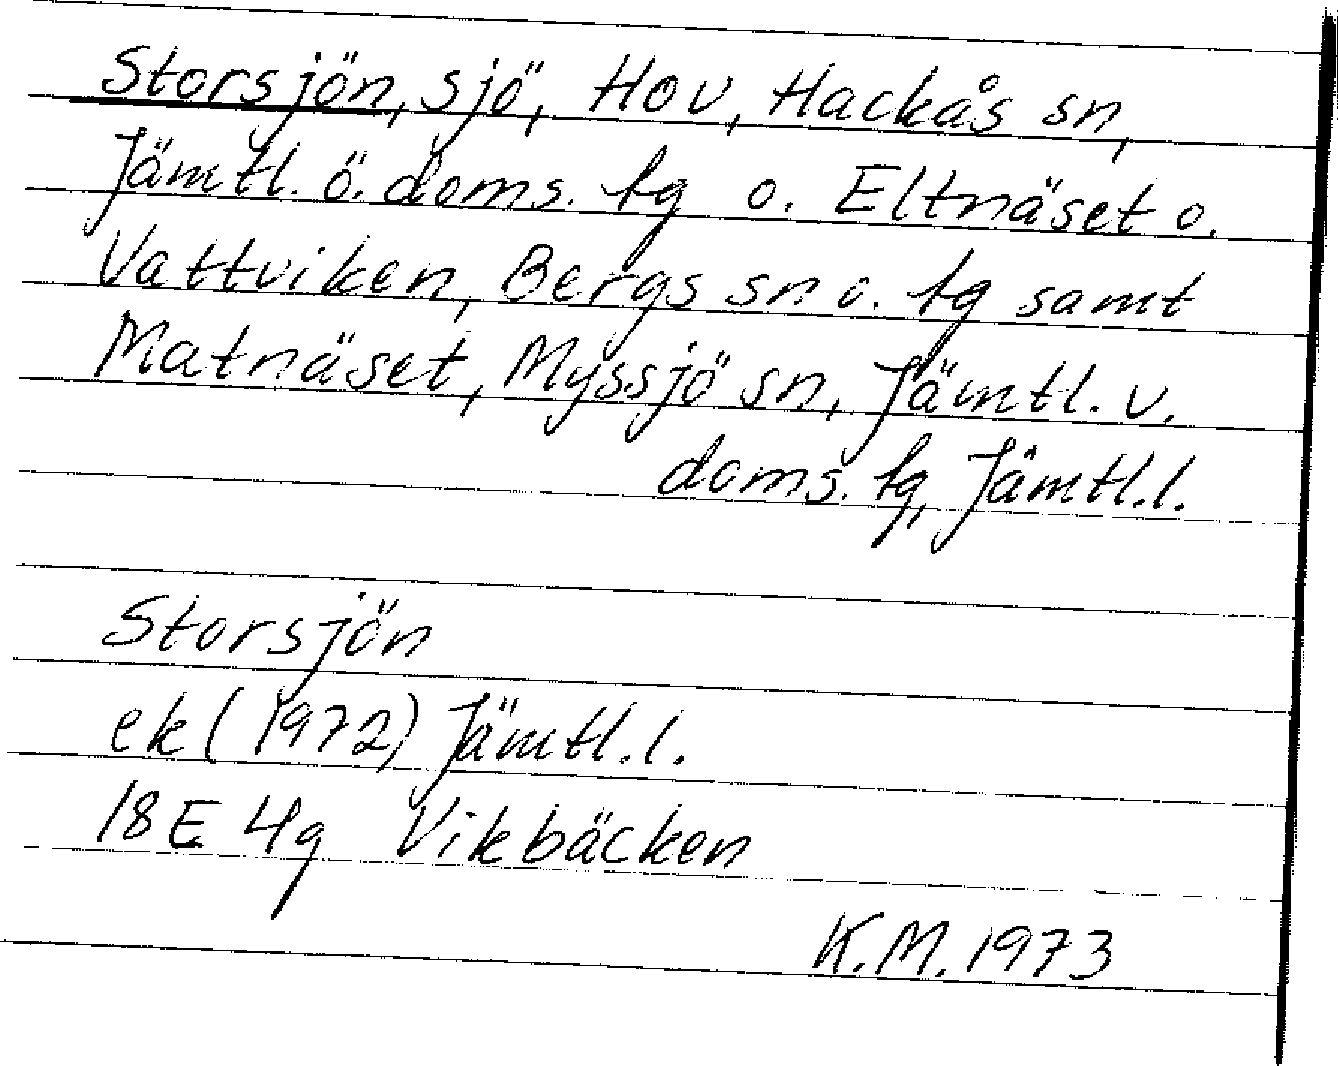 Storsjön, sjö, Hov, Hackås sn,
Jämtl. ö. doms. tg o. Eltnäset o.
Vattviken, Bergs sn o. tg samt
Matnäset, Myssjö sn, Jämtl. v.
doms. tg, Jämtl. l.
Storsjön
ek (1972) Jämtl. l.
18E 4g Vikbäcken
K.M. 1973